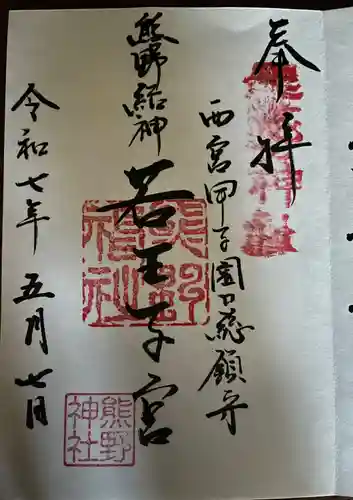 奉拝
西宮甲子園口総鎮守
熊野結神
若王子宮
令和七年五月七日
熊野
神社